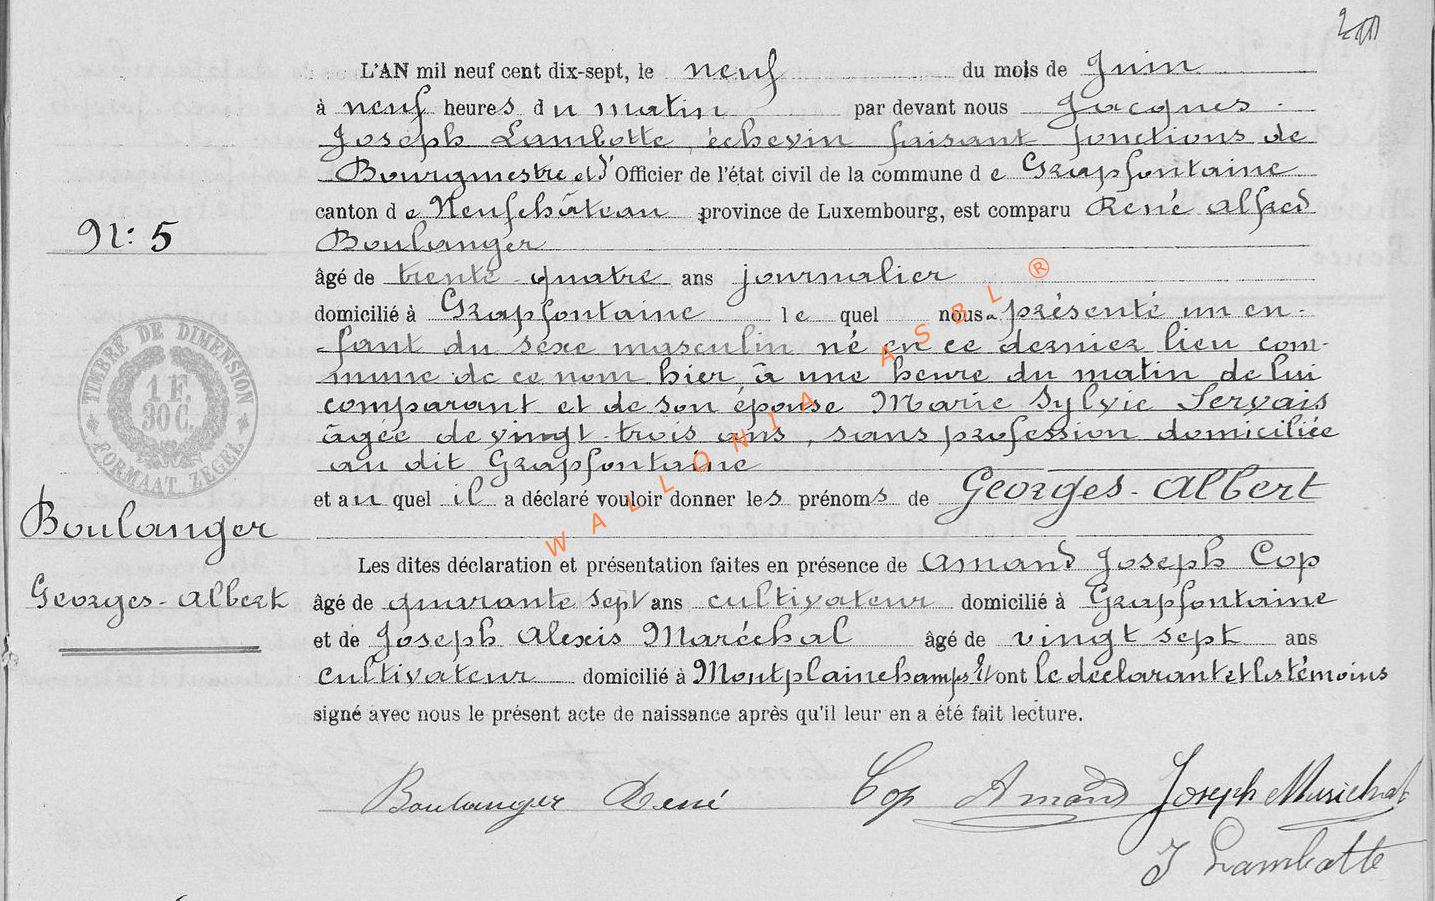 L'AN mil neuf cent dix-sept, le neuf du mois de Juin
à neuf heures du matin par devant nous Jacques
Joseph Lambotte, échevin faisant fonctions de
Bourgmestre et d'Officier de l'état civil de la commune de Grapfontaine
canton de Neufchâteau province de Luxembourg, est comparu René Alfred
Boulanger
N: 5
âgé de trente-quatre ans journalier
domicilié à Grapfontaine lequel nous a présenté un en-
fant du sexe masculin né en ce dernier lieu com-
mune de ce nom hier, à une heure du matin de lui
comparant et de son épouse Marie Sylvie Servais
âgée de vingt-trois ans, sans profession domiciliée
au dit Grapfontaine
TIMBRE DE DIMENSION
1 F.
30 C.
FORMAAT ZEGEL
et auquel il a déclaré vouloir donner les prénoms de Georges-Albert
Boulanger
Georges-Albert
Les dites déclaration et présentation faites en présence de Amand Joseph Cop
âgé de quarante sept ans cultivateur domicilié à Grapfontaine
et de Joseph Alexis Maréchal âgé de vingt sept ans
cultivateur domicilié à Montplainchamps Et ont le déclarant et les témoins
signé avec nous le présent acte de naissance après qu'il leur en a été fait lecture.
Boulanger René Cop Amand Joseph
J Lambotte
WALLONIA ASBL ®